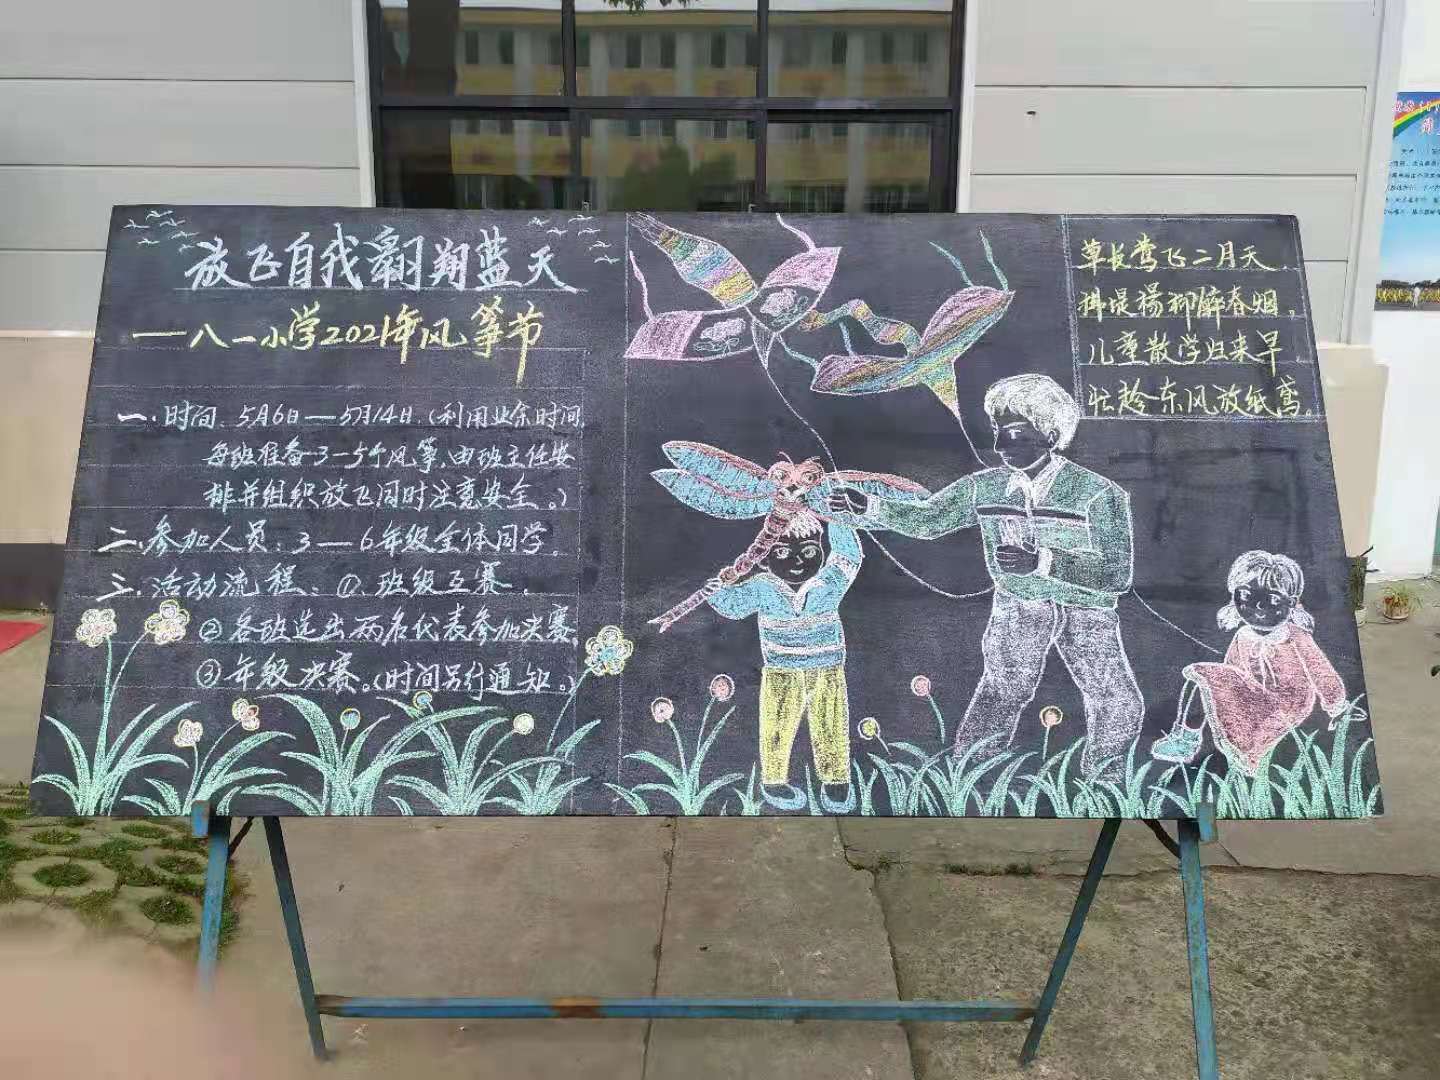 放飞自我翱翔蓝天
——八一小学2021年风筝节
一.时间.5月6日—5月14日.(利用业余时间,
每班准备3-5个风筝,由班主任安
排并组织放飞同时注意安全。)
二.参加人员:3—6年级全体同学.
三.活动流程:①.班级互赛.
②各班选出两名代表参加决赛.
③年级决赛。(时间另行通知。)
草长莺飞二月天.
拂堤杨柳醉春烟.
儿童散学归来早
忙趁东风放纸鸢。